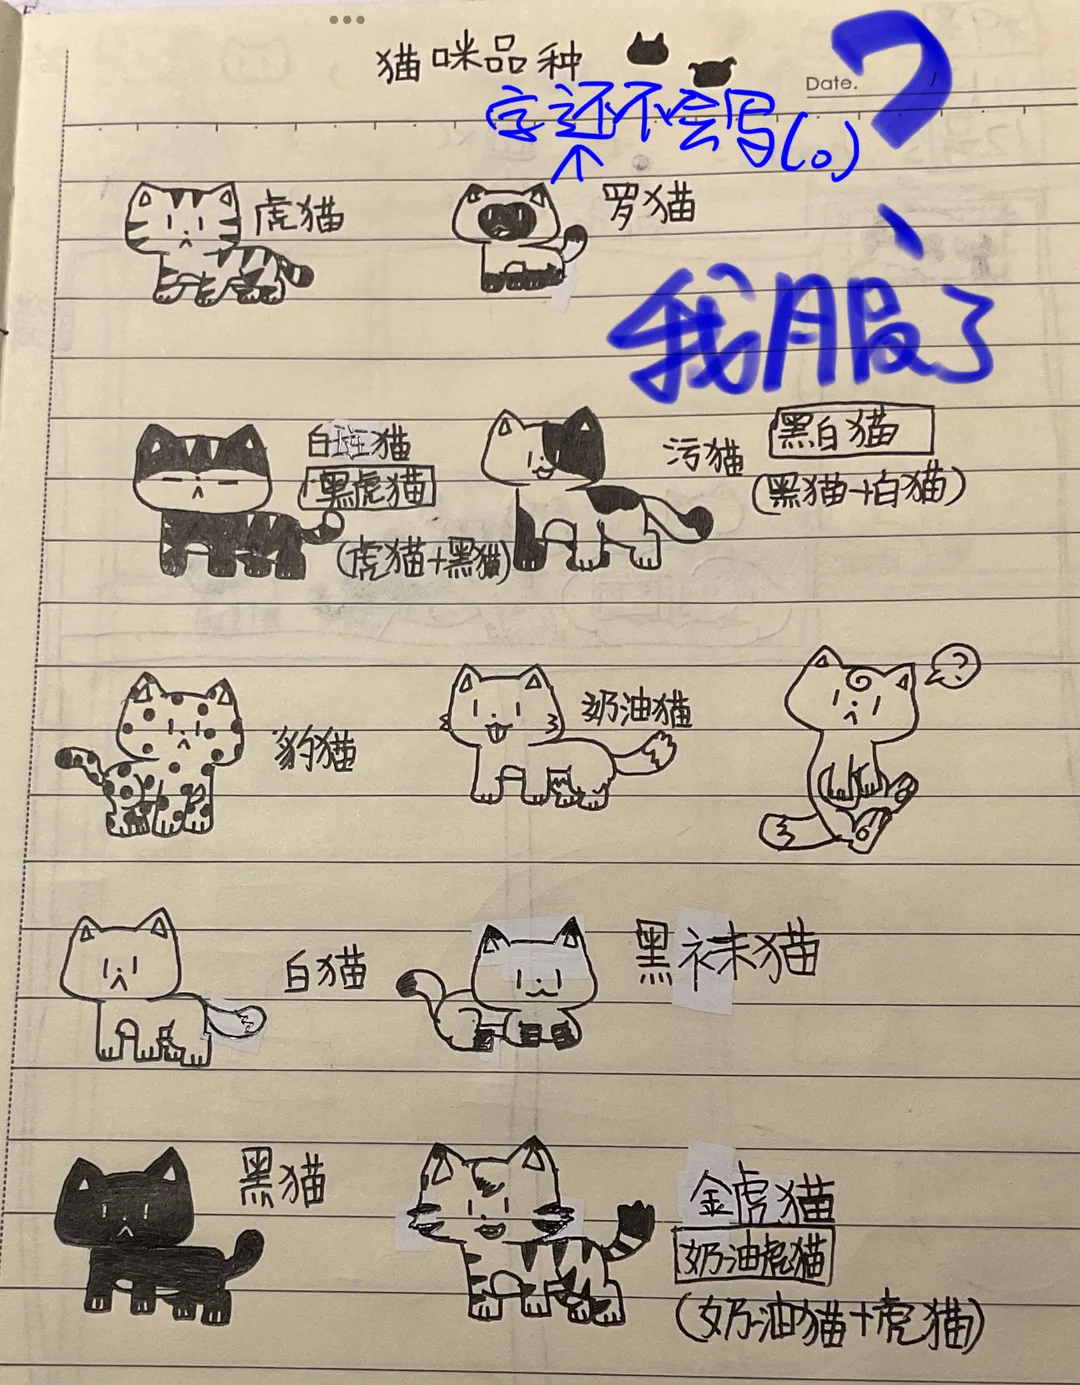 猫咪品种
Date.
?
字还不会写(。)
虎猫
罗猫
我服了
白斑猫
黑虎猫
(虎猫+黑猫)
污猫
黑白猫
(黑猫+白猫)
豹猫
奶油猫
?
白猫
黑袜猫
黑猫
金虎猫
奶油虎猫
(奶油猫+虎猫)